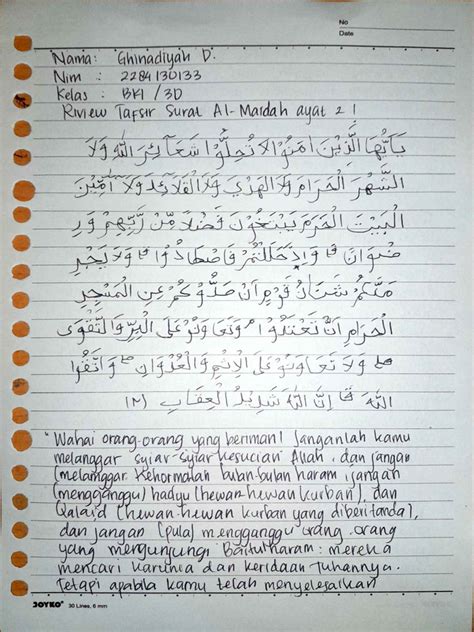 No
Date
Nama: Ghinadiyah D.
Nim : 2284130133
Kelas : BKI /3D
Riview Tafsir Surat Al-Maidah ayat 2 !
يَاَيُّهَا الَّذِيْنَ اٰمَنُوْا لَا تُحِلُّوْا شَعَآئِرَ اللّٰهِ وَلَا
الشَّهْرَ الْحَرَامَ وَلَا الْهَدْيَ وَلَا الْقَلَآئِدَ وَلَآ آمِّيْنَ
الْبَيْتَ الْحَرَمَ يَبْتَغُوْنَ فَضْلًا مِّنْ رَّبِّهِمْ وَرِ
ضْوَانًا ۗ وَاِذَا حَلَلْتُمْ فَاصْطَادُوْا ۗ وَلَا يَجْرِ
مَنَّكُمْ شَنَاٰنُ قَوْمٍ اَنْ صَدُّوْكُمْ عَنِ الْمَسْجِدِ
الْحَرَامِ اَنْ تَعْتَدُوْا ۘ وَتَعَاوَنُوْ عَلَى الْبِرِّ وَالتَّقْوٰى
ۖ وَلَا تَعَاوَنُوْ عَلَى الْاِثْمِ وَالْعُدْوَانِ ۖ وَاتَّقُوا
اللّٰهَ ۗ اِنَّ اللّٰهَ شَدِيْدُ الْعِقَابِ (٢)
"Wahai orang-orang yang beriman! Janganlah kamu
melanggar syiar-syiar kesucian Allah, dan jangan
(melanggar kehormatan bulan-bulan haram, jangan
(mengganggu) hadyu (hewan-hewan kurban), dan
Qalaid (hewan hewan kurban yang diberi tanda),
dan jangan (pula) mengganggu orang-orang
yang mengunjungi Baitulharam: mereka
mencari karunia dan keridaan Tuhannya.
Tetapi apabila kamu telah menyelesaikan
JOYKO 30 Lines, 6 mm